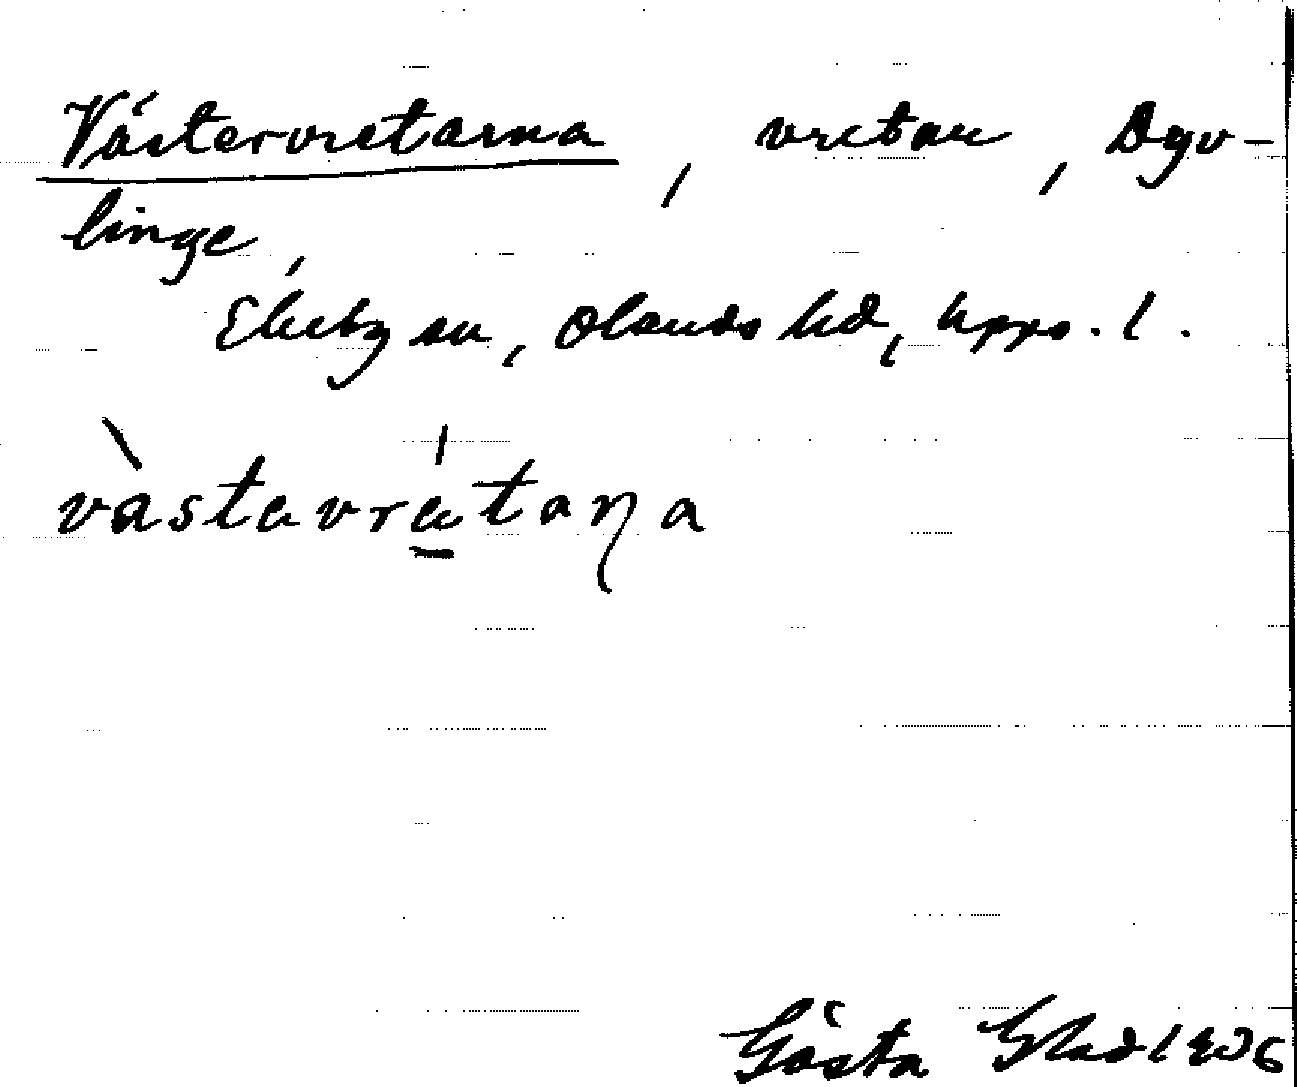 Västervretarna, vretar, Dyv-
linge,
Ekeby sn, Olands hd, Upps. l.
västavrätaṇa
Gösta Glad 1936